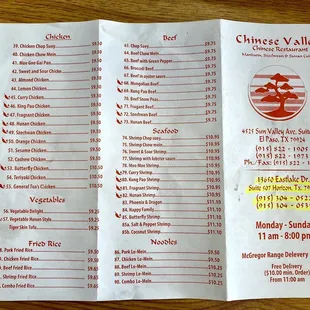 Chicken
39. Chicken Chop Suey $9.50
40. Chicken Chow Mein $9.50
41. Moo Goo Gai Pan $9.50
42. Sweet and Sour Chicken $9.50
43. Almond Chicken $9.50
44. Lemon Chicken $9.50
45. Curry Chicken $9.50
46. King Pao Chicken $9.50
47. Fragrant Chicken $9.50
48. Hunan Chicken $9.50
49. Szechwan Chicken $9.50
50. Orange Chicken $9.50
51. Sesame Chicken $9.50
52. Cashew Chicken $9.50
53. Butterfly Chicken
54. Teriyaki Chicken
55. General Tso's Chicken
Vegetables
56. Vegetable Delight $9.25
57. Vegetable Hunan Style $9.25
Tiger Skin Tofu $9.25
Fried Rice
Pork Fried Rice $9.65
Chicken Fried Rice $9.65
Beef Fried Rice $9.65
Shrimp Fried Rice $9.65
Combo Fried Rice
Beef
63. Chop Suey
64. Beef Chow Mein
65. Beef with Green Pepper
66. Broccoli Beef
67. Beef in oyster sauce
68. Mongolian Beef
69. Kung Pao Beef
70. Snow Peas
71. Fragrant Beef
72. Szechwan Beef
73. Hunan Beef
Seafood
74. Shrimp Chop Suey $10.95
75. Shrimp Chow Mein $10.95
76. Sweet & Sour Shrimp $10.95
77. Shrimp with lobster sauce $10.95
78. Moo Moo Shrimp $10.95
79. Curry Shrimp $10.95
80. Kung Pao Shrimp $10.95
81. Fragrant Shrimp $10.95
82. Hunan Shrimp $10.95
83. Phoenix & Dragon
84. Happy Family
85. Butterfly Shrimp
85a. Salt Shrimp
85b. Coconut Shrimp
Noodles
86. Pork Lo-Mein
87. Chicken Lo-Mein
88. Beef Lo-Mein
89. Shrimp Lo-Mein
90. Combo Lo-Mein
Chinese Valley
Chinese Restaurant
4125 Sun Valley Ave, Suite
El Paso, TX 79924
(915) 822 -
(915) 822 -
Ph./Fax: (915) 822 -
13672 Eastlake Dr.
Suite 507 Horizon, TX
(915) 304 - 052
(915) 304 - 053
Monday - Sunday
11 am - 8:00 pm
McGregor Range Delevery
Free Delivery
($10.00 min. Order)
From 11:00 am